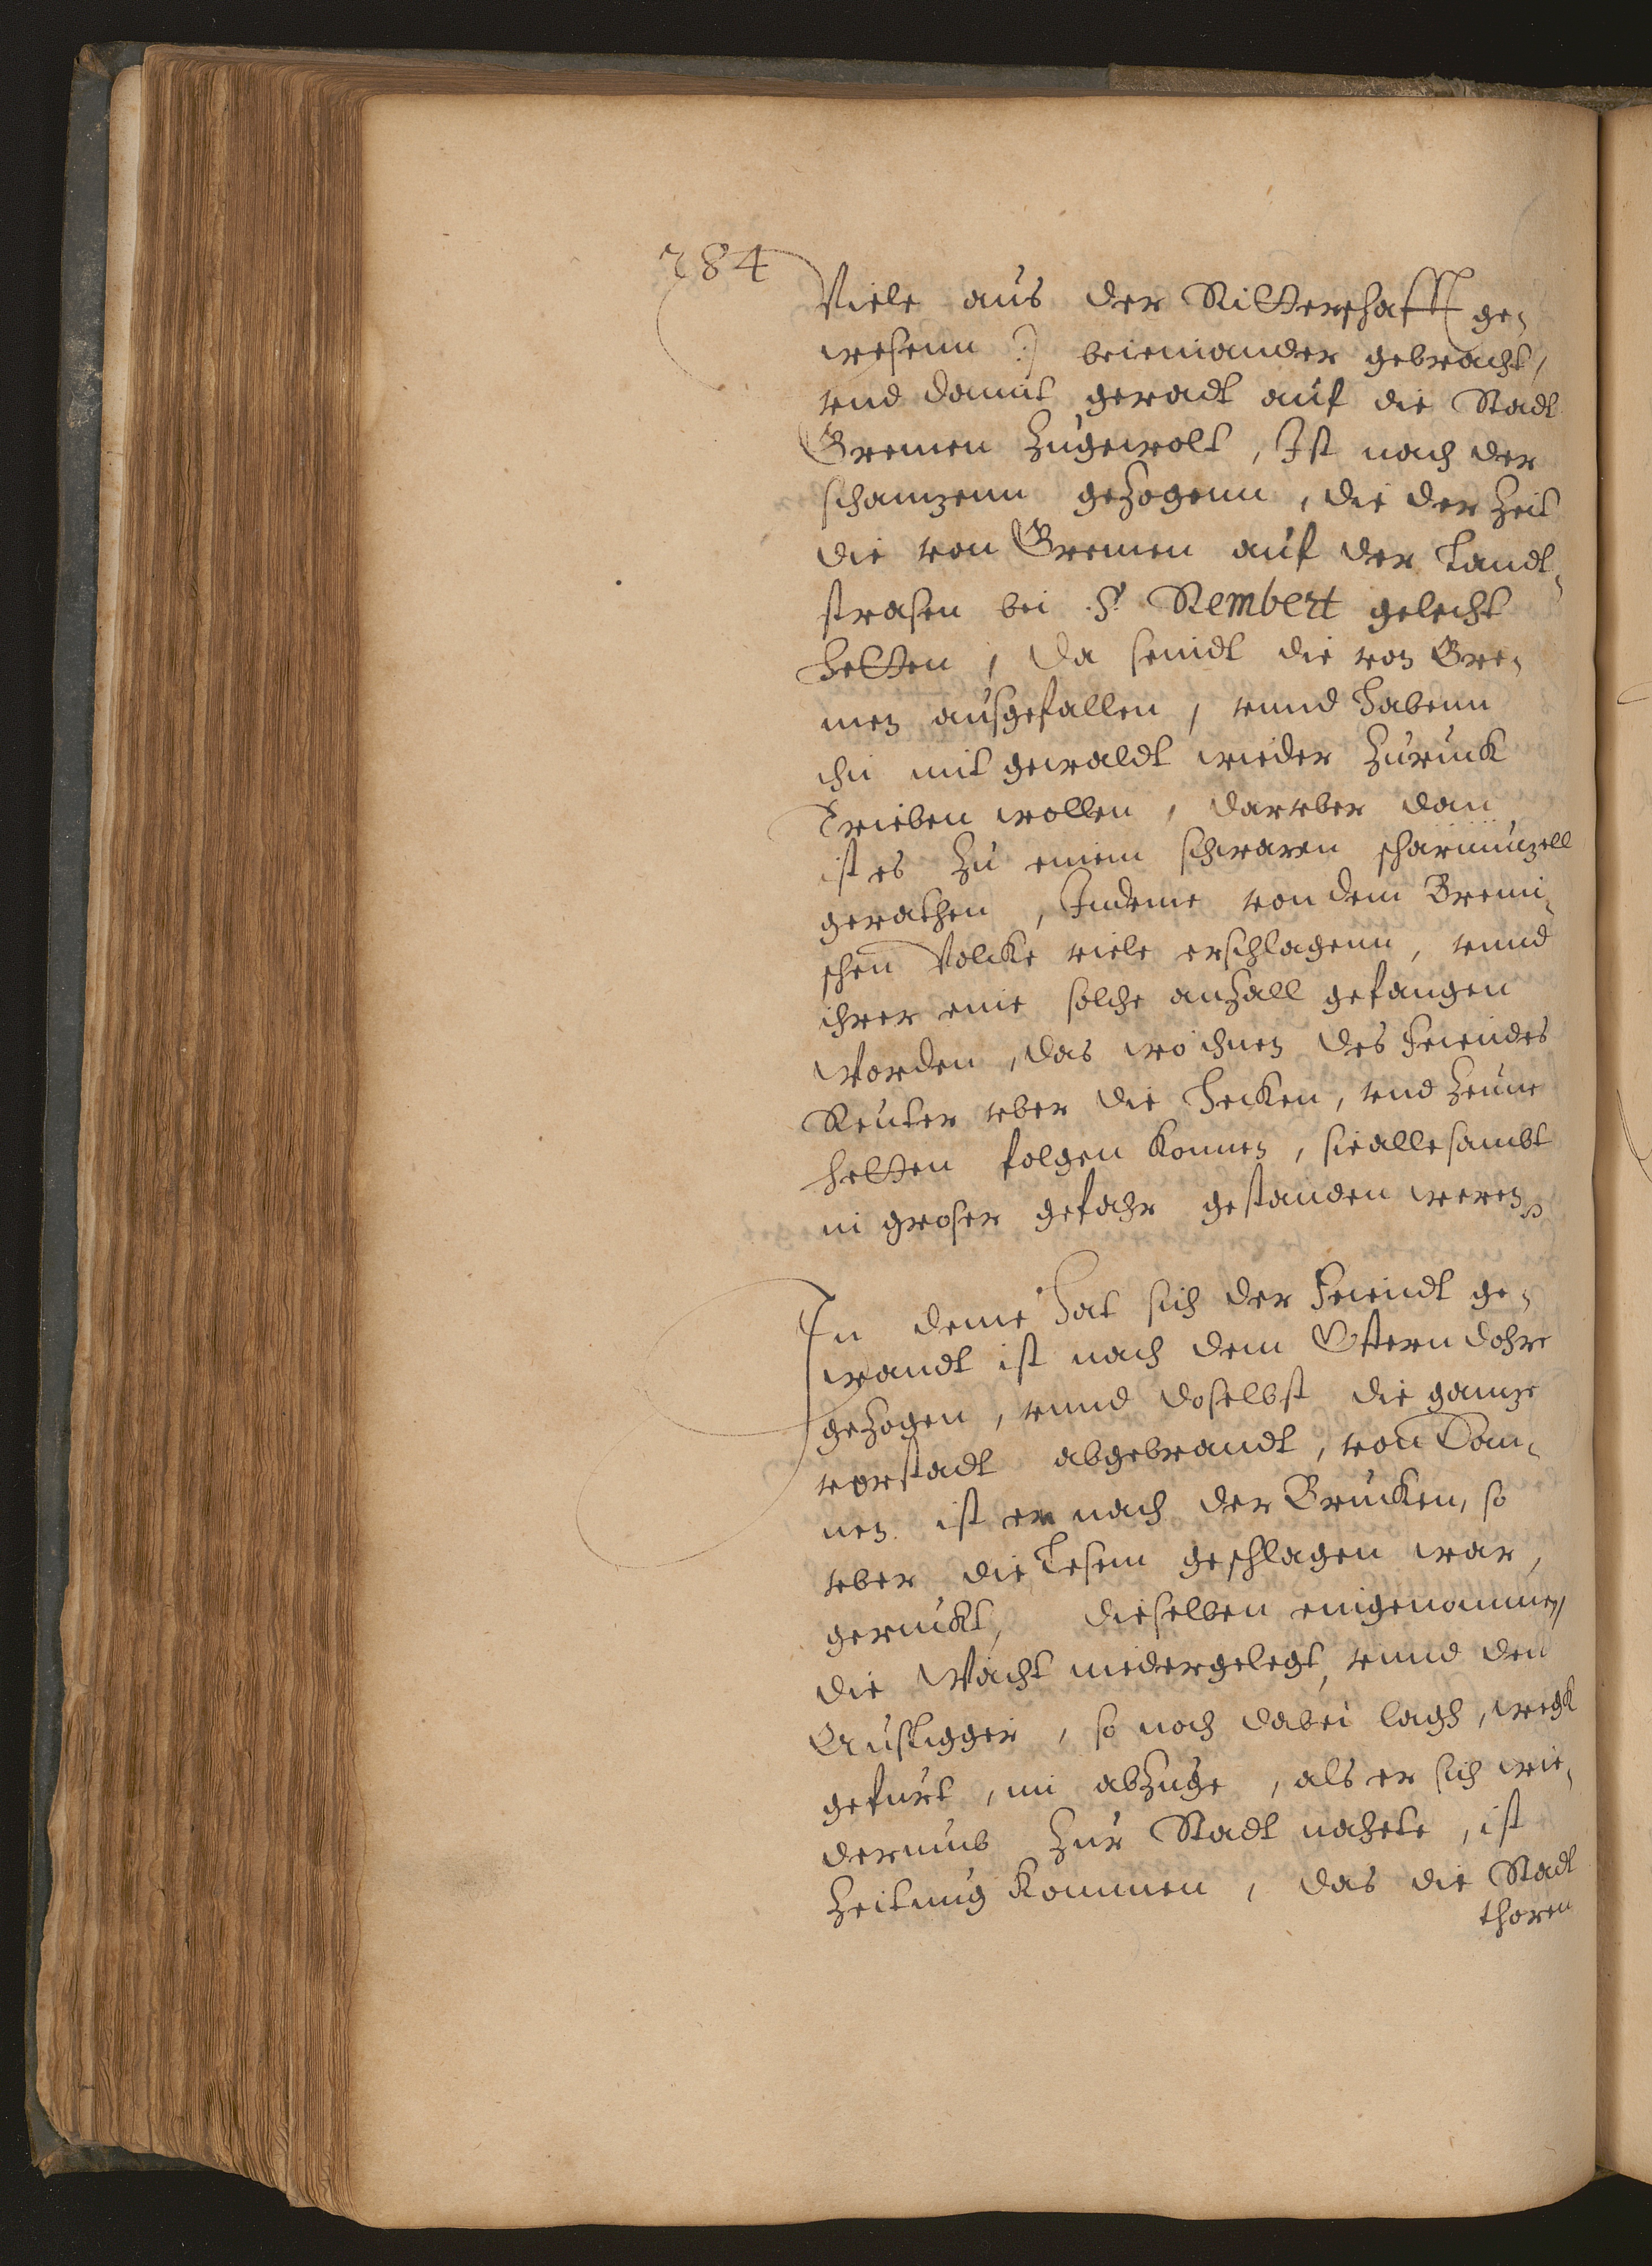 284
Viele aus der Ritterschafft ge,
wesenn :) beieinander gebracht,
vnd damit geradt auf die Stadt
Bremen zugewolt, Ist nach der
schanzenn gezogenn, die der Zeit
die von Bremen auf der Landt,
strasen bei S. Rembert gelecht
hetten, da seindt die von Bre,
men ausgefallen, vnnd habenn
ihn mit gewaldt wieder zuruck
Trieben wollen, darvber dan
ist es zu einem schwaren scharmuzell
gerathen, Indeme von dem Bremi,
schen Volcke viele erschlagenn, vnnd
ihrer eine solche anzall gefangen
Worden, das wo ihnen des Feiendes
Reuter vber die Hecken, vnd Zeune
hetten folgen konnen, sie allesambt
in groser gefahr gestanden weren
In deme hat sich der Feiendt ge,
wandt ist nach dem Ostern dohre
gezogen, vnnd doselbst die ganze
vorstadt abgebrandt, von Dan,
nen ist er nach der Brucken, so
vber die Lesem geschlagen war,
geruckt, dieselben eingenommen,
die Wacht niedergelegt, vnnd den
Ausligger, so noch dabei lagh, wegk
gefurt, im abzuge, als er sich wie,
derumb zur Stadt nahete, ist
Zeitung kommen, das die Stadt
thoren